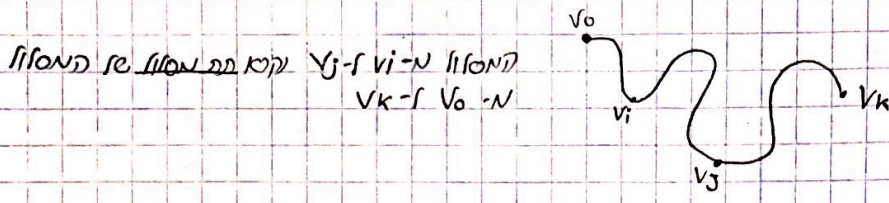 המסלול מ-vi ל-vj נקרא תת מסלול של המסלול
מ-v0 ל-vk
v0
vi
vj
vk